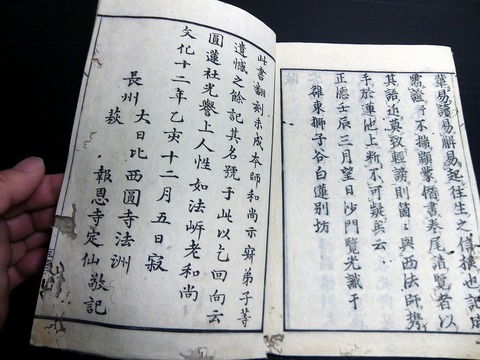 葉易讀易解易起往生之信據也記成
需證于不揣顓蒙僭書卷尾請覽者以
其語近莫致輕謗則箇〻與西法師携
手於蓮池上斷不可疑矣云
正德壬辰三月望日沙門覽光識于
雒東獅子谷白蓮別坊
此書翻刻未成本師和尚示寂弟子等
遺憾之餘記其名號于此以乞回向云
圓蓮社光譽上人性如法岸老和尚
文化十二年乙亥十二月五日寂
長州 大日比 西圓寺法洲
萩 報恩寺定仙敬記